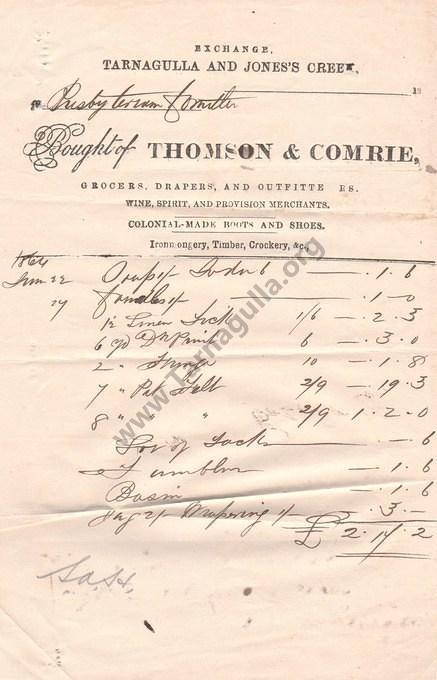 EXCHANGE,
TARNAGULLA AND JONES'S CREEK,
18
Presbyterian Comittee
Bought of THOMSON & COMRIE,
GROCERS, DRAPERS, AND OUTFITTE RS.
WINE, SPIRIT, AND PROVISION MERCHANTS.
COLONIAL-MADE BOOTS AND SHOES.
Ironmongery, Timber, Crockery, &c.,
1864
June 22 Soap 1/- Soda 6 — . 1 . 6
27 Candles 1/- — . 1 - 0
1½ Linen Tick 1/6 — . 2 . 3
6 yd Print 6 — . 3 . 0
2 " Fringe 10 — . 1 . 8
7 " Pet Felt 2/9 — . 19 . 3
8 " " " 2/9 1 . 2 . 0
Box of Tacks — . 6
Tumbler — . 1 . 6
Basin — . 1 . 6
2/- 1/- . 3 . —
£ 2 . 17 . 2
www.Tarnagulla.org